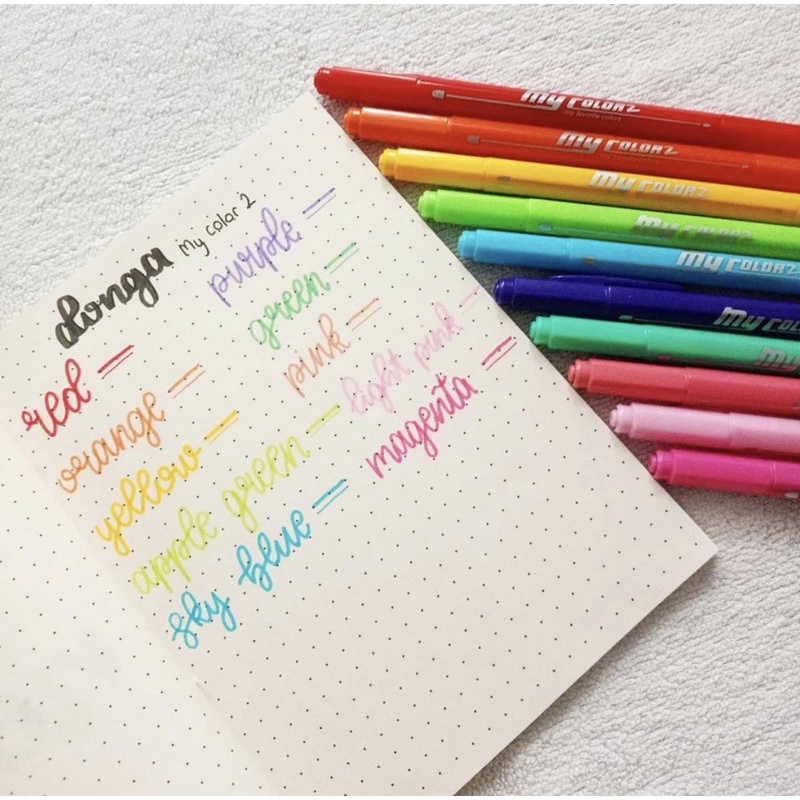 donga my color 2
red
orange
yellow
apple green
sky blue
purple
green
pink
light pink
magenta
my color2
my favorite colors
my color2
my color2
my color2
my color2
my co
my